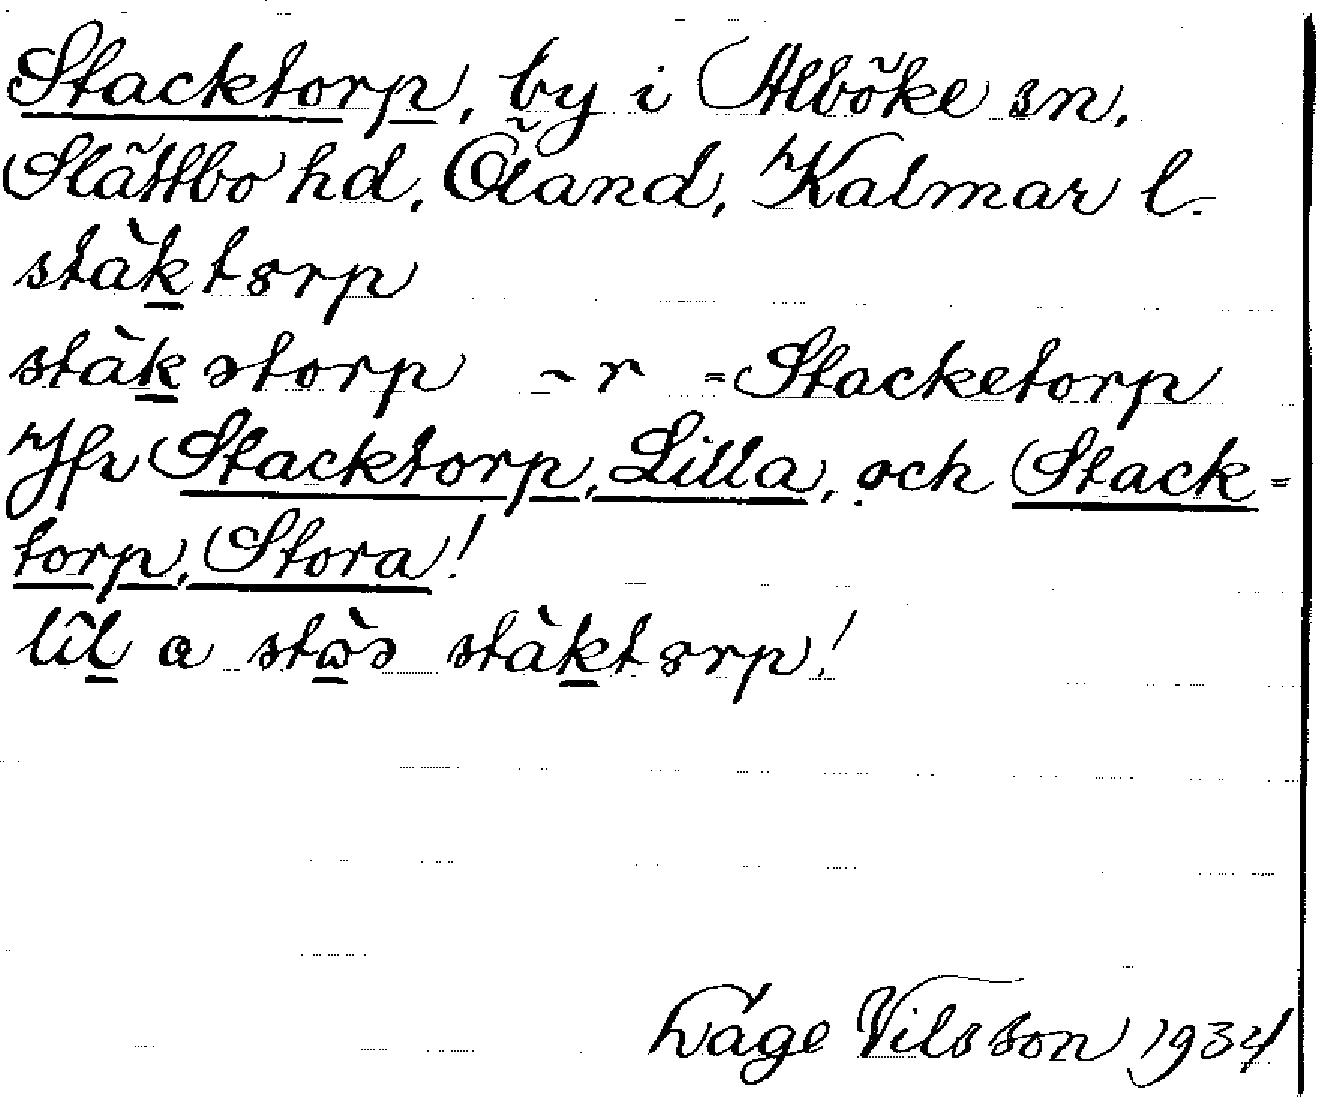 Stacktorp, by i Alböke sn,
Slättbo hd, Öland, Kalmar l.
stàktɞrp
stàkətorp – r = Stacketorp
Jfr Stacktorp, Lilla, och Stack-
torp, Stora!
lìl a stɷ̀s stàktɞrp!
Låge Nilsson 1934